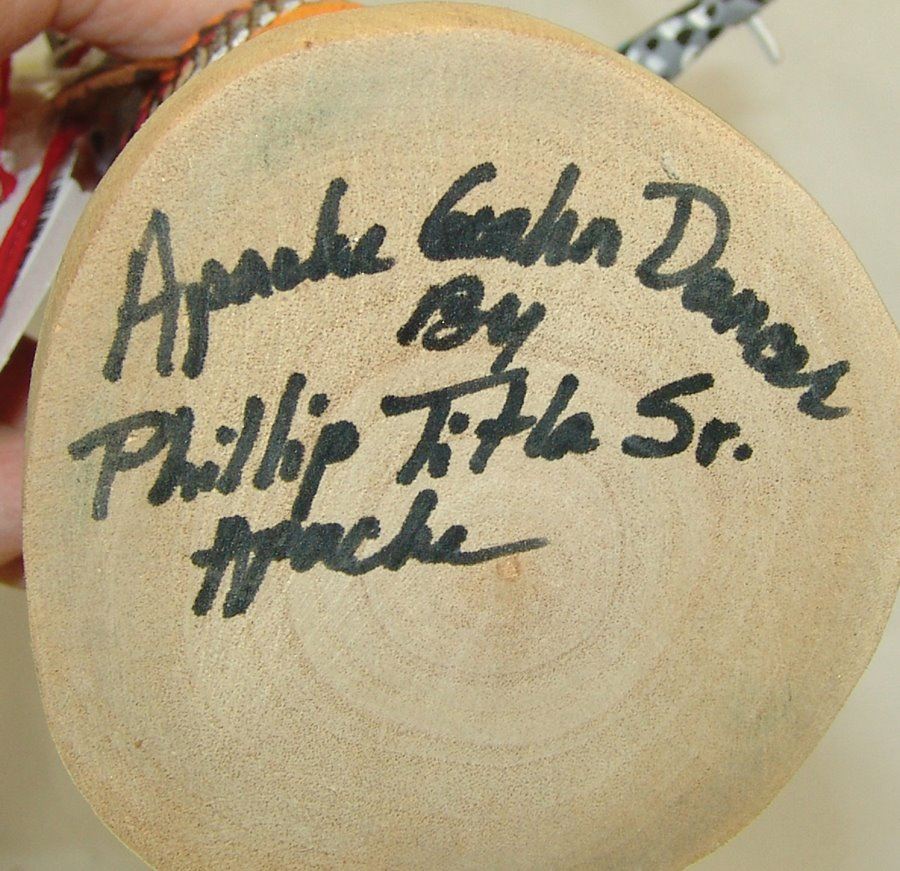 Apache Gaahn Dancer
By
Phillip Titla Sr.
Apache